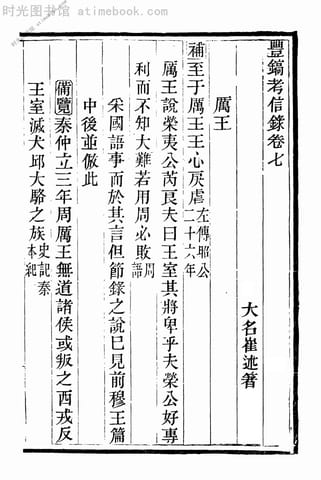 时光图书馆 - atimebook.com
豐鎬考信錄卷七
大名崔述著
厲王
補至于厲王王心戾虐左傳昭公二十六年
厲王說榮夷公芮良夫曰王室其將卑乎夫榮公好專
利而不知大難若用周必敗周語
采國語事而於其言但節錄之說已見前穆王篇
中後並倣此
備覽秦仲立三年周厲王無道諸侯或叛之西戎反
王室滅犬邱大駱之族史記秦本紀
时光图书馆 - atimebook.com